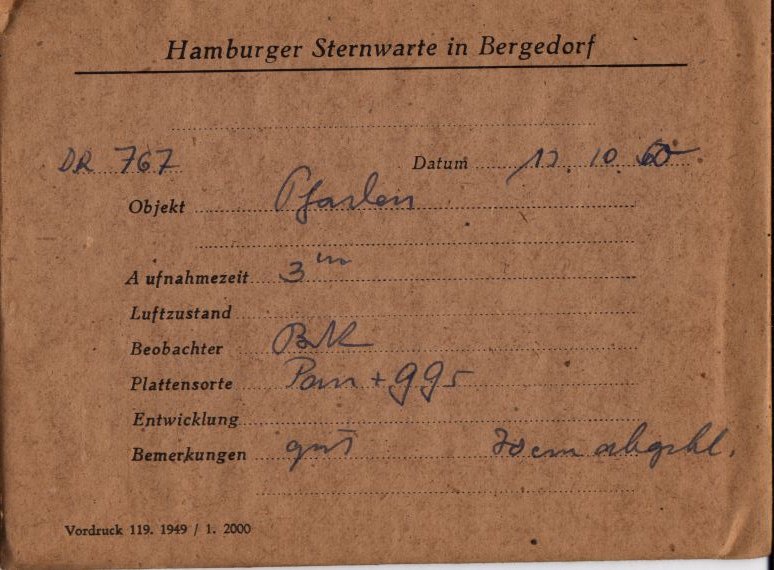 Hamburger Sternwarte in Bergedorf
DR 767 Datum 17. 10. 60
Objekt
Aufnahmezeit 3 m
Luftzustand
Beobachter
Plattensorte Pan + gg5
Entwicklung
Bemerkungen gut abgebl.
Vordruck 119. 1949 / 1. 2000